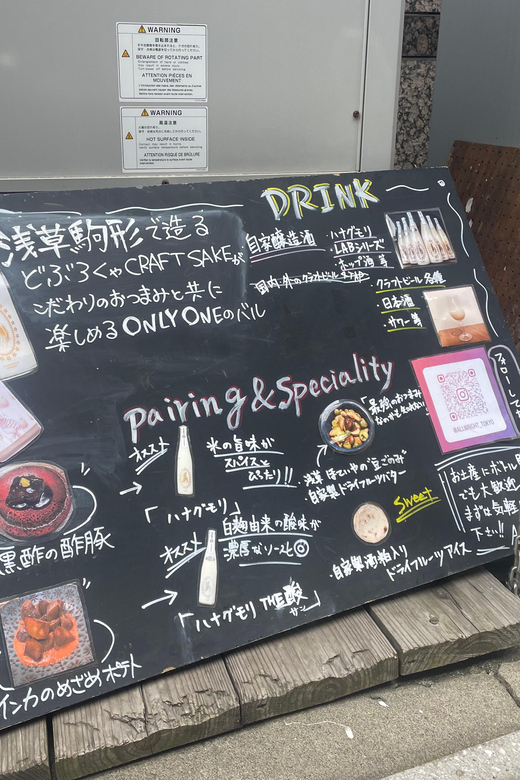 WARNING
回転部注意
BEWARE OF ROTATING PART
ATTENTION PIÈCES EN
MOUVEMENT
WARNING
高温注意
HOT SURFACE INSIDE
ATTENTION RISQUE DE BRÛLURE
浅草駒形で造る
どぶろくやCRAFT SAKEが
こだわりのおつまみと共に
楽しめるONLY ONEのバル
DRINK
自家醸造酒
・ハナグモリ
・LABシリーズ
・ホップ酒 等
国内・外のクラフトビール
・クラフトビール各種
・日本酒
・サワー 等
Pairing & Speciality
オススメ
米の旨味が
スパイスと
ぴったり!!
「ハナグモリ」
黒酢の酢豚
オススメ
白麹由来の酸味が
濃厚なソースと◎
「ハナグモリ THE酸」
サン
インカのめざめポテト
最強のおつまみ
浅草 ほていやの"豆ごのみ"
自家製ドライフルーツバター
Sweet
・自家製酒粕入り
ドライフルーツアイス
フォローして
@ALLWRIGHT_TOKYO
お土産にボトル
でも大歓迎
まずは気軽
下さい!!